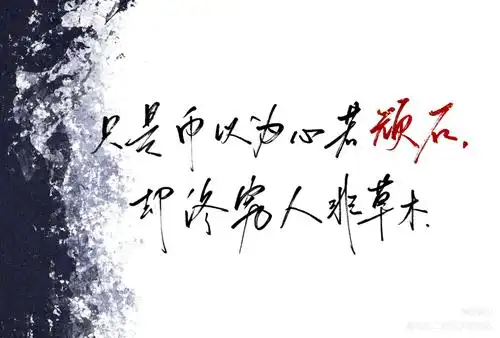 只是以为心若顽石，
却终究人非草木.